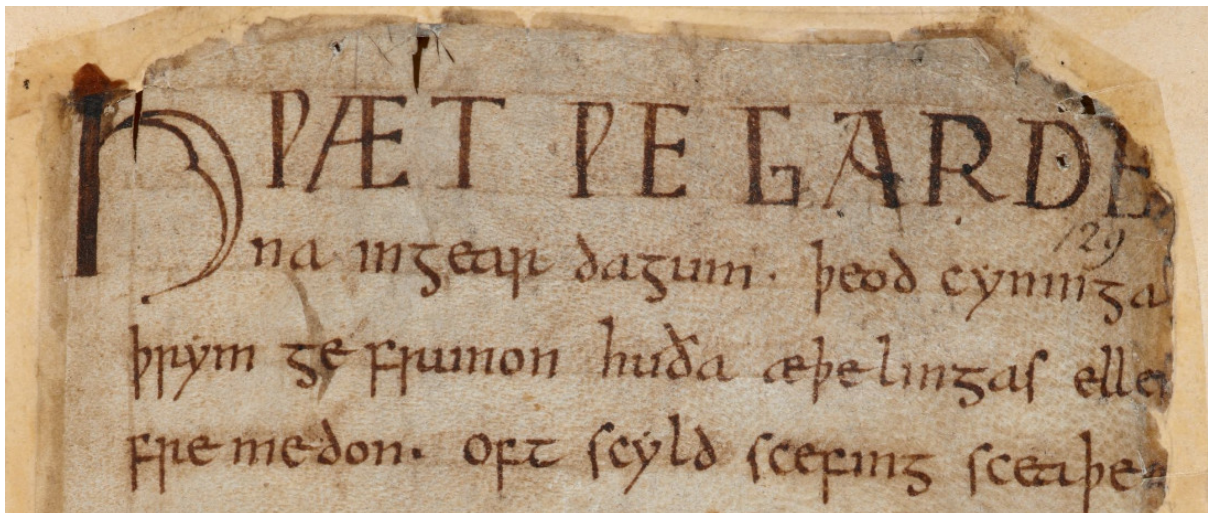 HǷÆT ǷE GARDE
129
na ingear dagum. þeod cyninga
þrym ge frunon huða æþelingas ellen
fre medon. oft scyld scefing sceaþe